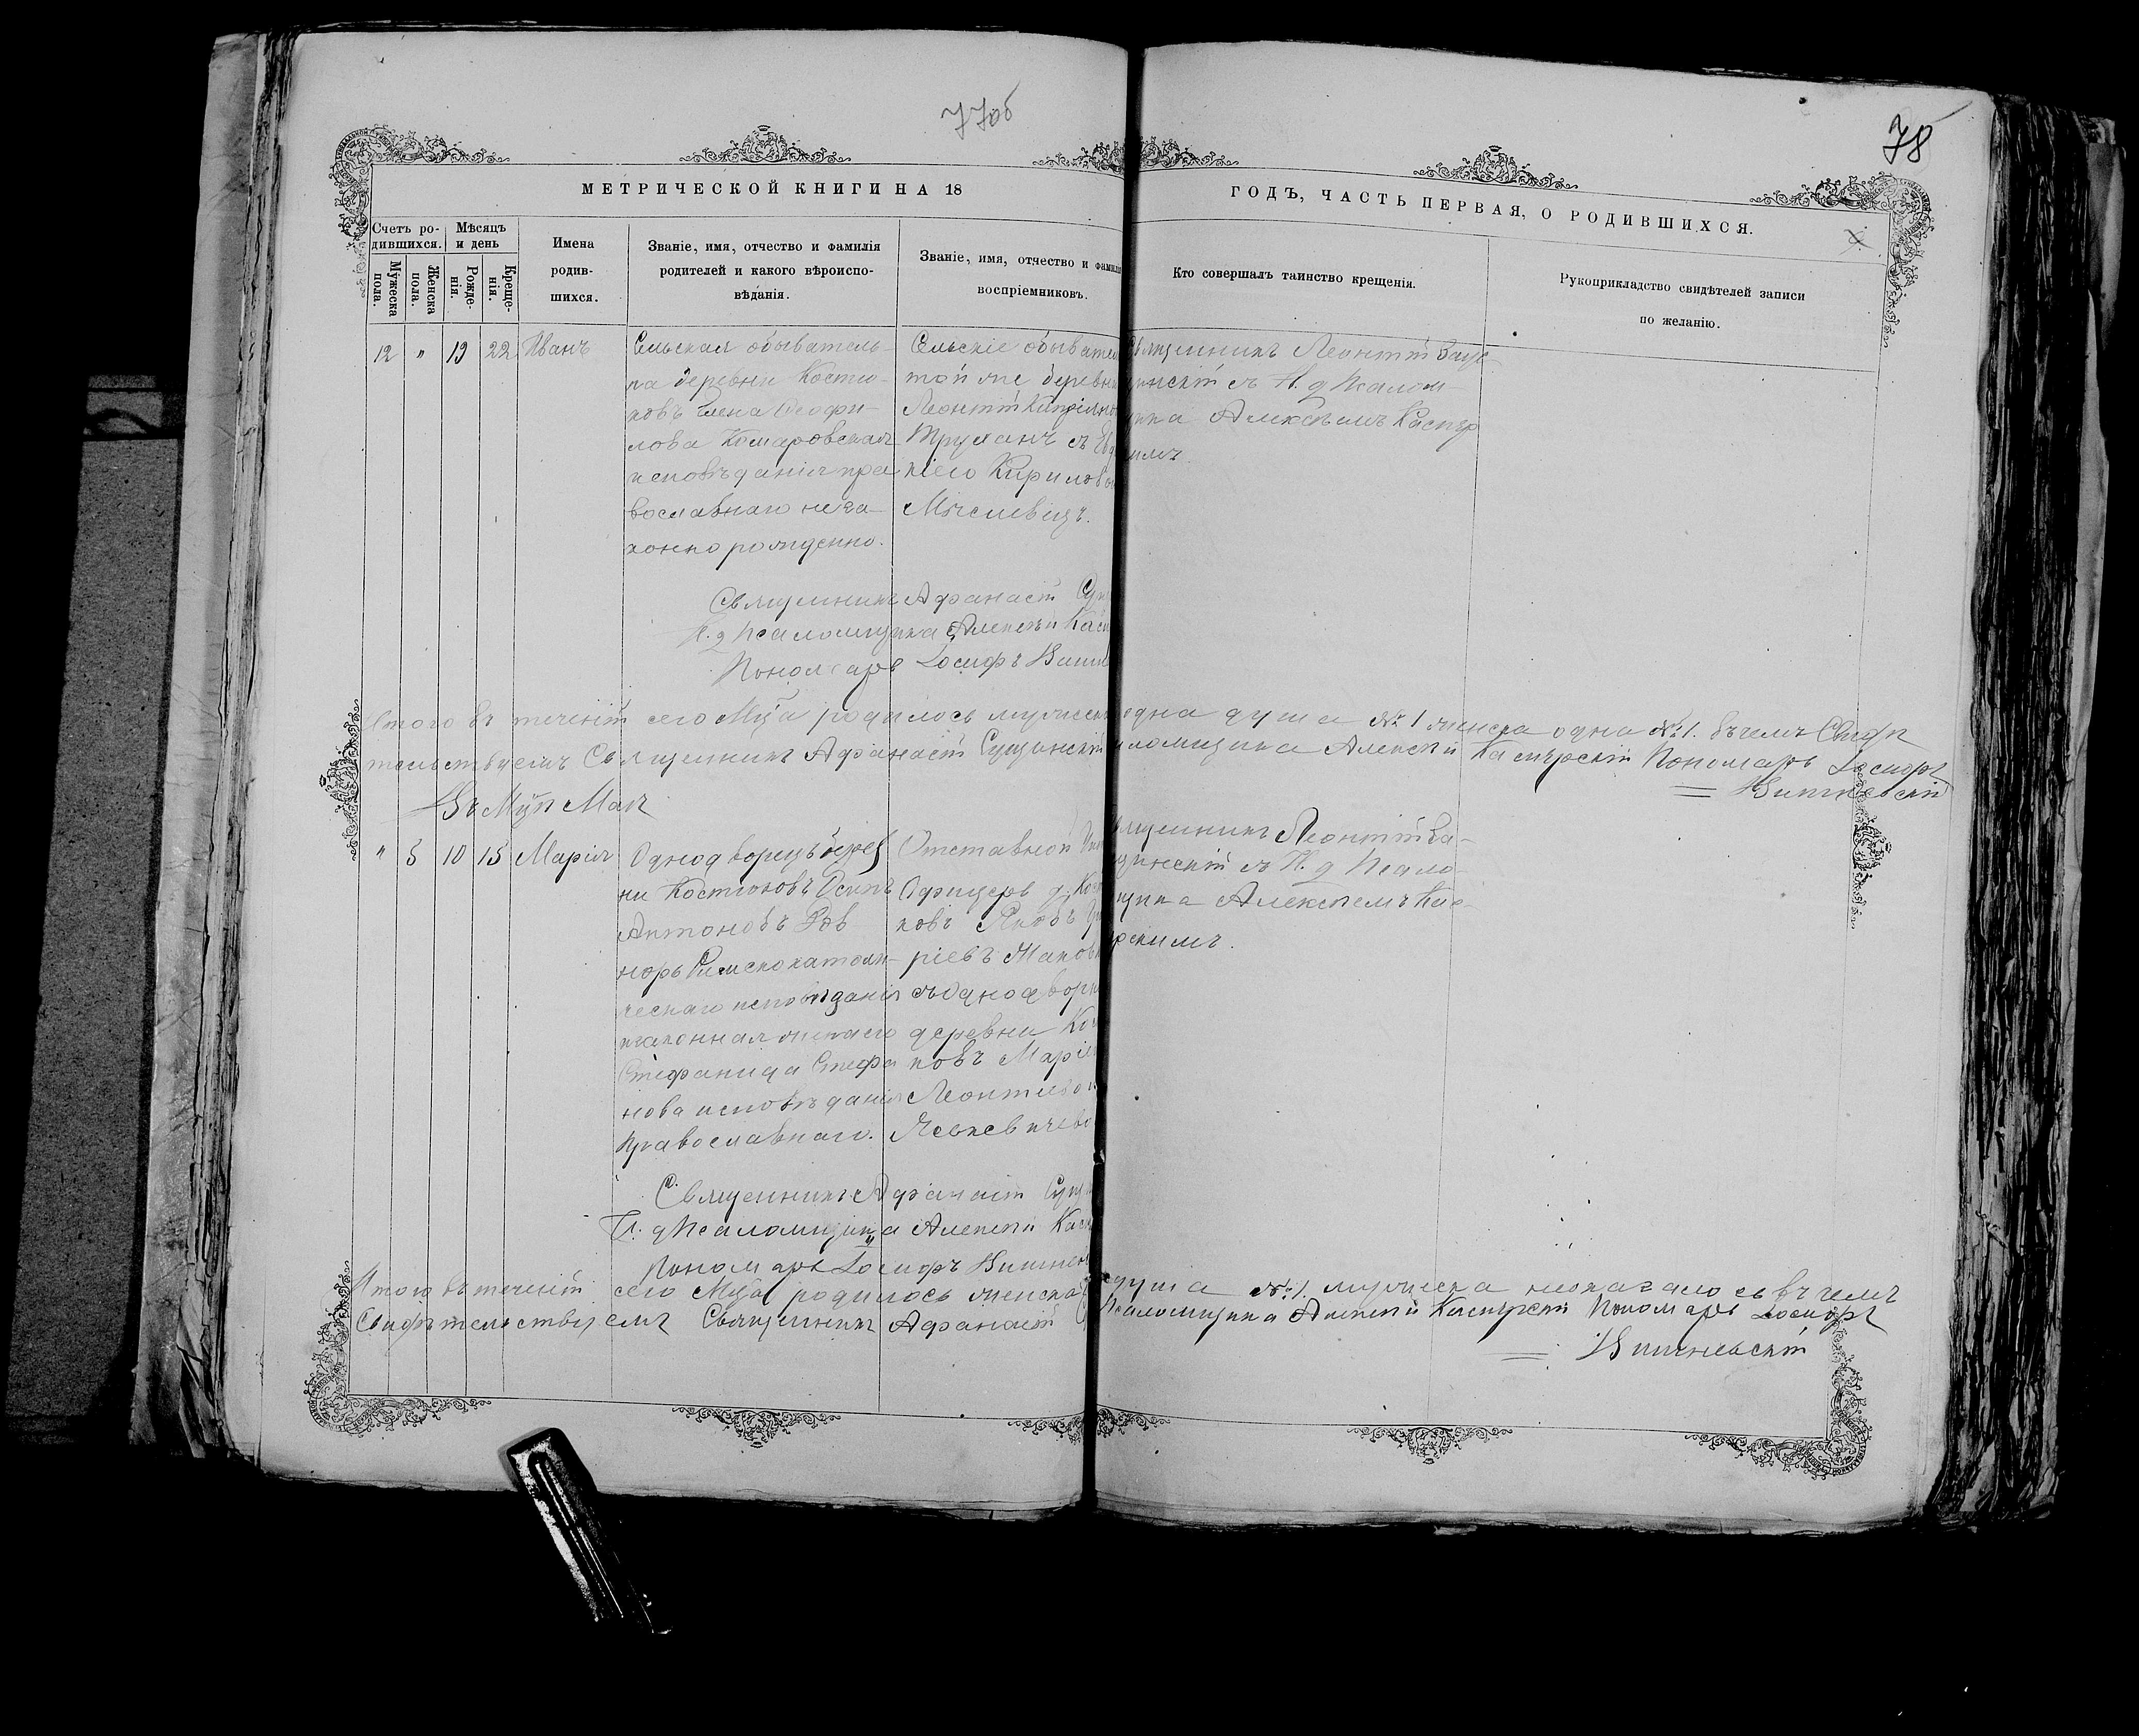 77об
78
МЕТРИЧЕСКОЙ КНИГИ НА 18
ГОДЪ, ЧАСТЬ ПЕРВАЯ, О РОДИВШИХСЯ.
Счетъ ро-
дившихся.
Мужеска
пола.
Женска
пола.
Мѣсяцъ
и день
Рожде-
нія.
Креще-
нія.
Имена
родив-
шихся.
Званіе, имя, отчество и фамилія
родителей и какого вѣроиспо-
вѣданія.
Званіе, имя, отчество и фамилі
воспріемниковъ.
Кто совершалъ таинство крещенія.
Рукоприкладство свидѣтелей записи
по желанію.
12 " 19 22 Иванъ
Сельская обыватель-
ка деревни Костю-
ковъ Елена Феофи-
лова Комаровская
исповѣданія пра
вославнаго неза-
конно рожденно.
Сельскіе обывател
той же деревн
Леонтій
Труханъ съ
кіею Кирилов
Священникъ Леонтій
съ И. д Псалом
щика Алексѣемъ Каспер
Священникъ Афанасій
И. д Псаломщика Алексѣй Кас
Пономарь Іосифъ Вишн
Итого въ теченіи сего Мца родилось мужеск одна душа № 1 женска одна № 1. въ чемъ Свидѣ
тельствуемъ Священникъ Афанасій Сущинскій аломщика Алексѣй Касперскій Пономарь Іосифъ
Вишневскій
Въ Мцѣ Маѣ
" 5 10 15 Марія
Однодворецъ дерев
ни Костюковъ Осипъ
Антоновъ
Римскокатоли-
ческаго исповѣданія
и законная жена его
Стефанида Стефа
нова исповѣданія
Православнаго.
Отставной
Офицеръ д. Кост
ковъ Яковъ
ріевъ
съ однодворк
деревни Ко
ковъ Маріе
Леонтіево
щенникъ Леонтій За-
съ И. д Псало
щика Алексѣемъ Кас-
рскимъ.
Священникъ Афанасій Сущ
И. д Псаломщика Алексѣй Касп
Пономарь Іосифъ Вишнев
Итого въ теченіи сего Мца родилось женска душа № 1. мужеска неоказалось въ чемъ
Свидѣтельствуемъ Священникъ Афанасій Псаломщика Алексѣй Касперскій Пономарь Іосифъ
Вишневскій